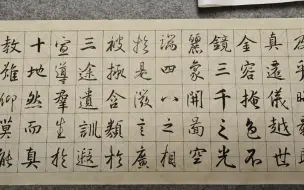 及乎晦影歸
真遷儀越世
金容掩色不
鏡三千之光
麗象開圖空
端四八之相
於是微言廣
被拯含類於
三途遺訓遐
宣導羣生於
十地然而真
教難仰莫能